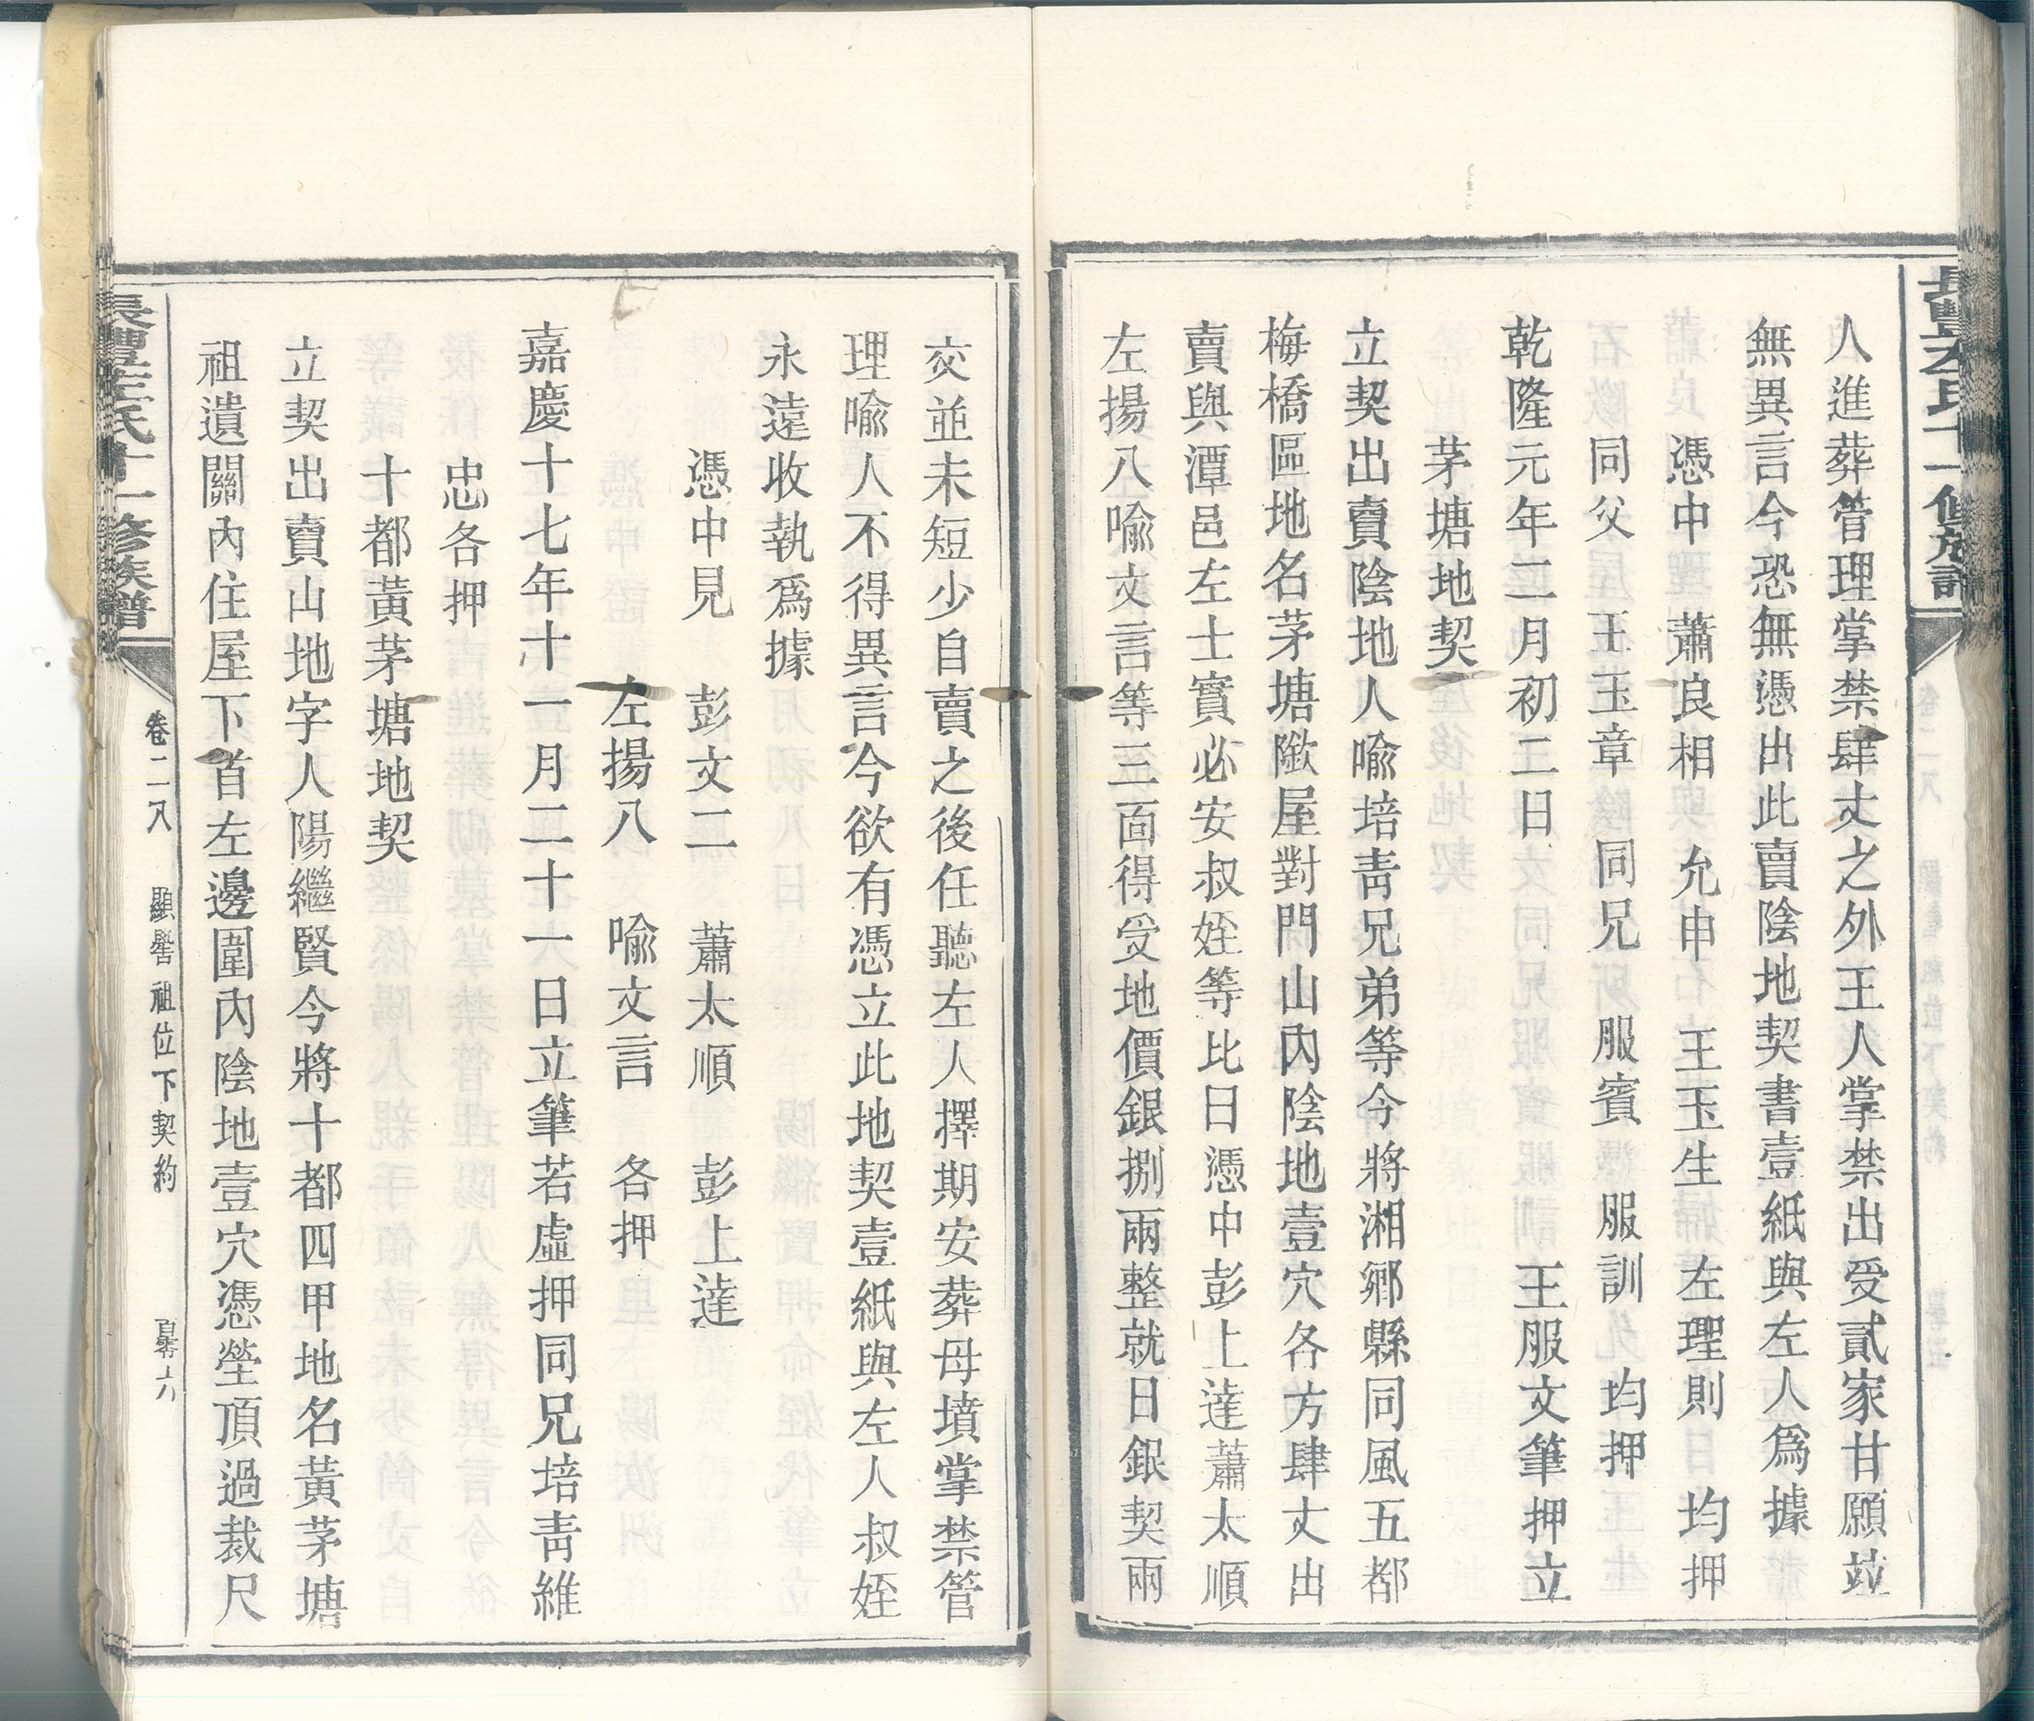 長豐左氏十一修族譜
人進葬管理掌禁肆丈之外王人掌禁出受貳家甘願並
無異言今恐無憑出此賣陰地契書壹紙與左人為據
憑中　蕭良相　允申　王玉生　左理則　均押
同父　王玉章　同兄　服賓　服訓　均押
乾隆元年二月初二日　王服文筆押立
茅塘地契
立契出賣陰地人喻培青兄弟等今將湘鄉縣同風五都
梅橋區地名茅塘墩屋對門山內陰地壹穴各方肆丈出
賣與潭邑左士寶必安叔姪等比日憑中彭上達蕭太順
左揚八喻文言等三面得受地價銀捌兩整就日銀契兩
交並未短少自賣之後任聽左人擇期安葬母墳掌禁管
理喻人不得異言今欲有憑立此地契壹紙與左人叔姪
永遠收執為據
憑中見　彭文二　蕭太順　彭上達
左揚八　喻文言　各押
嘉慶十七年十一月二十一日立筆若虛押同兄培青維
忠各押
十都黃茅塘地契
立契出賣山地字人陽繼賢今將十都四甲地名黃茅塘
祖遺關內住屋下首左邊圍內陰地壹穴憑塋頂過裁尺
長豐左氏十一修族譜
卷二又　顯譽祖位下契約